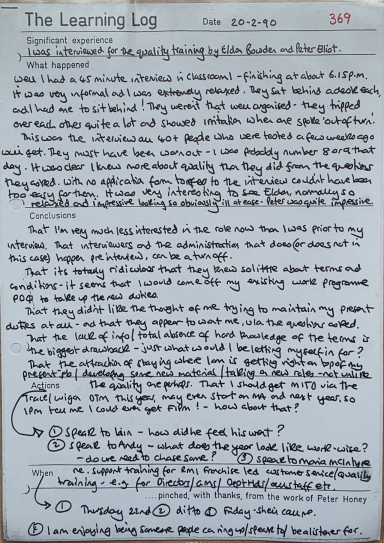 The Learning Log Date 20-2-90 369
Significant experience
I was interviewed for the quality training by Eldon Bowden and Peter Elliot.
What happened
Well I had a 45 minute interview in classroom 1 - finishing at about 6.15p.m.
It was very informal and I was extremely relaxed. They sat behind a desk each,
and I had me to sit behind! They weren't that well organised - they tripped
over each other quite a lot and showed irritation when one spoke 'out of turn'.
This was the interview all 40+ people who were tested a few weeks ago
will get. They must have been worn out - I was probably number 8 or 9 that
day. It was clear I knew more about quality than they did from the questions
they asked. With no application form to refer to the interview couldn't have been
too easy for them. It was very interesting to see Eldon, normally so
relaxed and impressive looking so obviously ill at ease - Peter was quite impressive.
Conclusions
That I'm very much less interested in the role now than I was prior to my
interview. That interviews and the administration that does (or does not in
this case) happen pre interview, can be a turn off.
That it's totally ridiculous that they knew so little about terms and
conditions - it seems that I would come off my existing work programme
PDQ to take up the new duties.
That they didn't like the thought of me trying to maintain my present
duties at all - and that they appear to want me, via the questions asked.
That the lack of info/total absence of hard knowledge of the terms is
the biggest drawback - just what would I be letting myself in for?
That the attraction of staying where I am is getting right on top of my
present job/developing some new material/taking on new roles - not unlike
Actions the quality one perhaps. That I should get MITD via the
Travel/Wigan OTM this year, may even start on MA and next year, so
IPM tell me I could even get FIPM! - how about that?
① Speak to Iain - how did he feel his went?
② Speak to Andy - what does the year look like work-wise?
- do we need to chase some? ③ Speak to Moria McIntyre
When re. support training for BM/Franchise led customer service/quality
training - e.g for Director/GMs/Dept Hds/our staff etc.
....pinched, with thanks, from the work of Peter Honey
① Thursday 22nd ② ditto ③ Friday - she's on course.
I am enjoying being someone people can ring up/speak to/be a listener for.